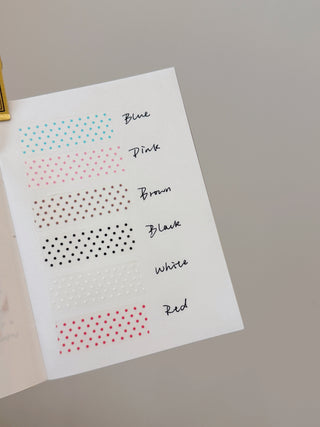 Blue
Pink
Brown
Black
White
Red